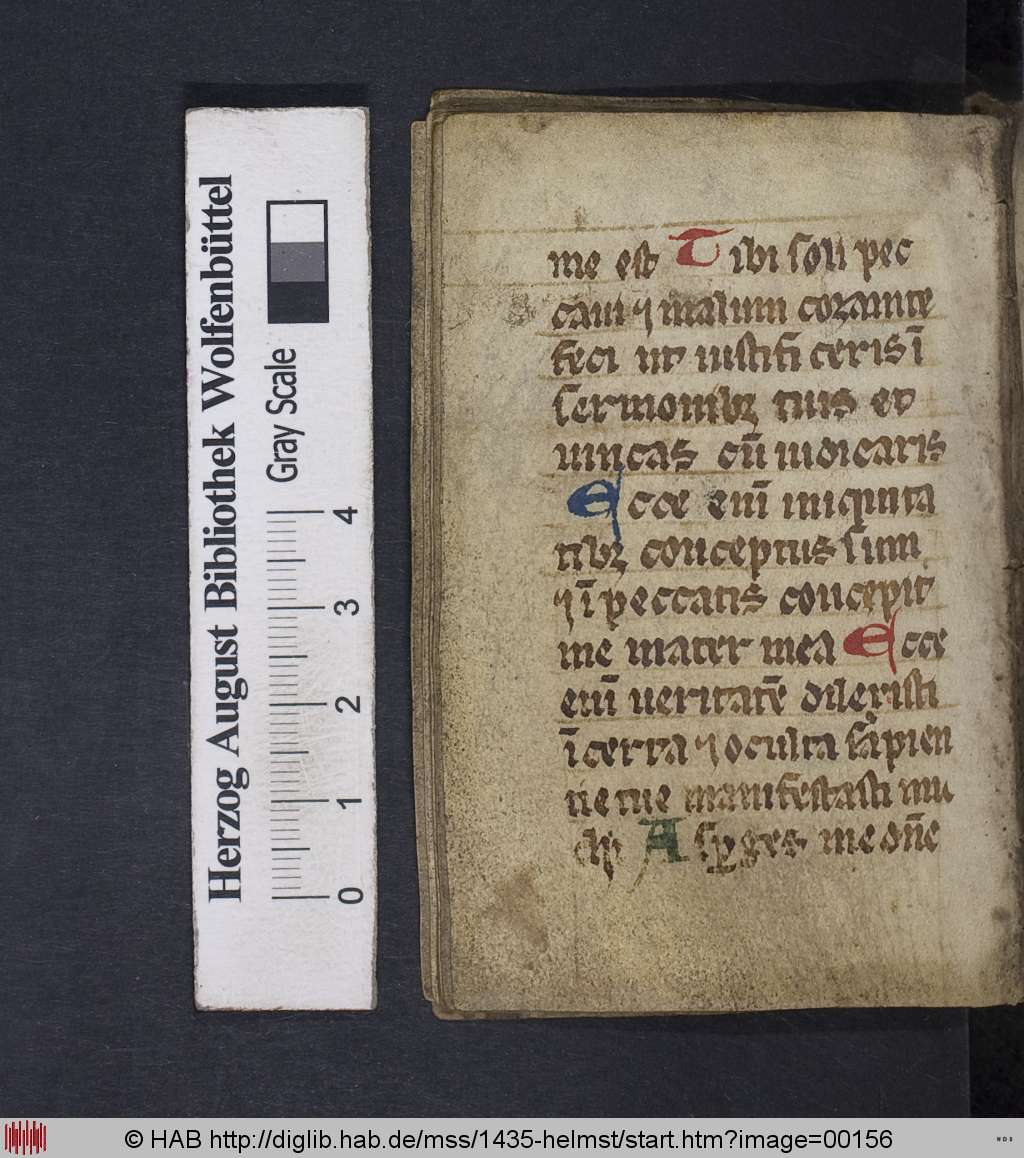 Herzog August Bibliothek Wolfenbüttel
Gray Scale
0 1 2 3 4
me est Tibi soli pec
caui ⁊ malum coram te
feci ut iustificeris ī
sermonibꝫ tuis et
uincas cū iudicaris
Ecce enī iniquita
tibꝫ conceptus sum
⁊ ī peccatis concepit
me mater mea Ecce
enī ueritatē dilexisti
īcerta ⁊ occulta sapien
tie tue manifestasti mi
chi Asꝑges me dn̄e
© HAB http://diglib.hab.de/mss/1435-helmst/start.htm?image=00156